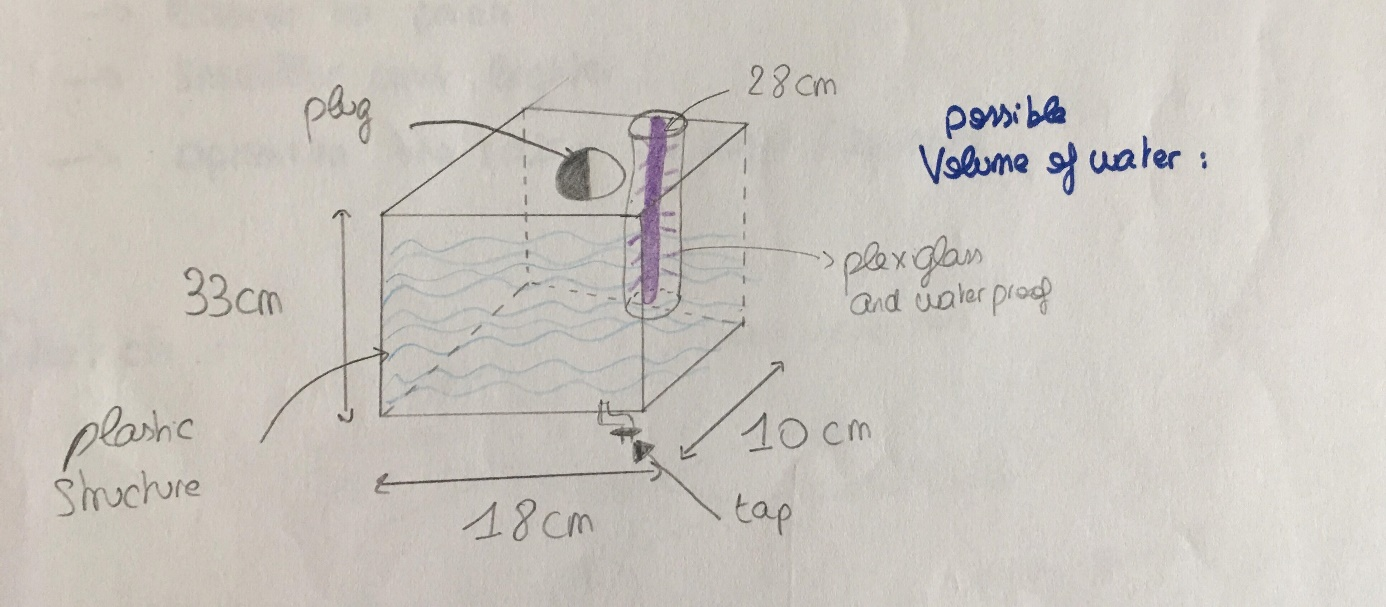 plug
28cm
possible
Volume of water :
33cm
plexiglass
and waterproof
plastic
structure
10cm
18cm
tap